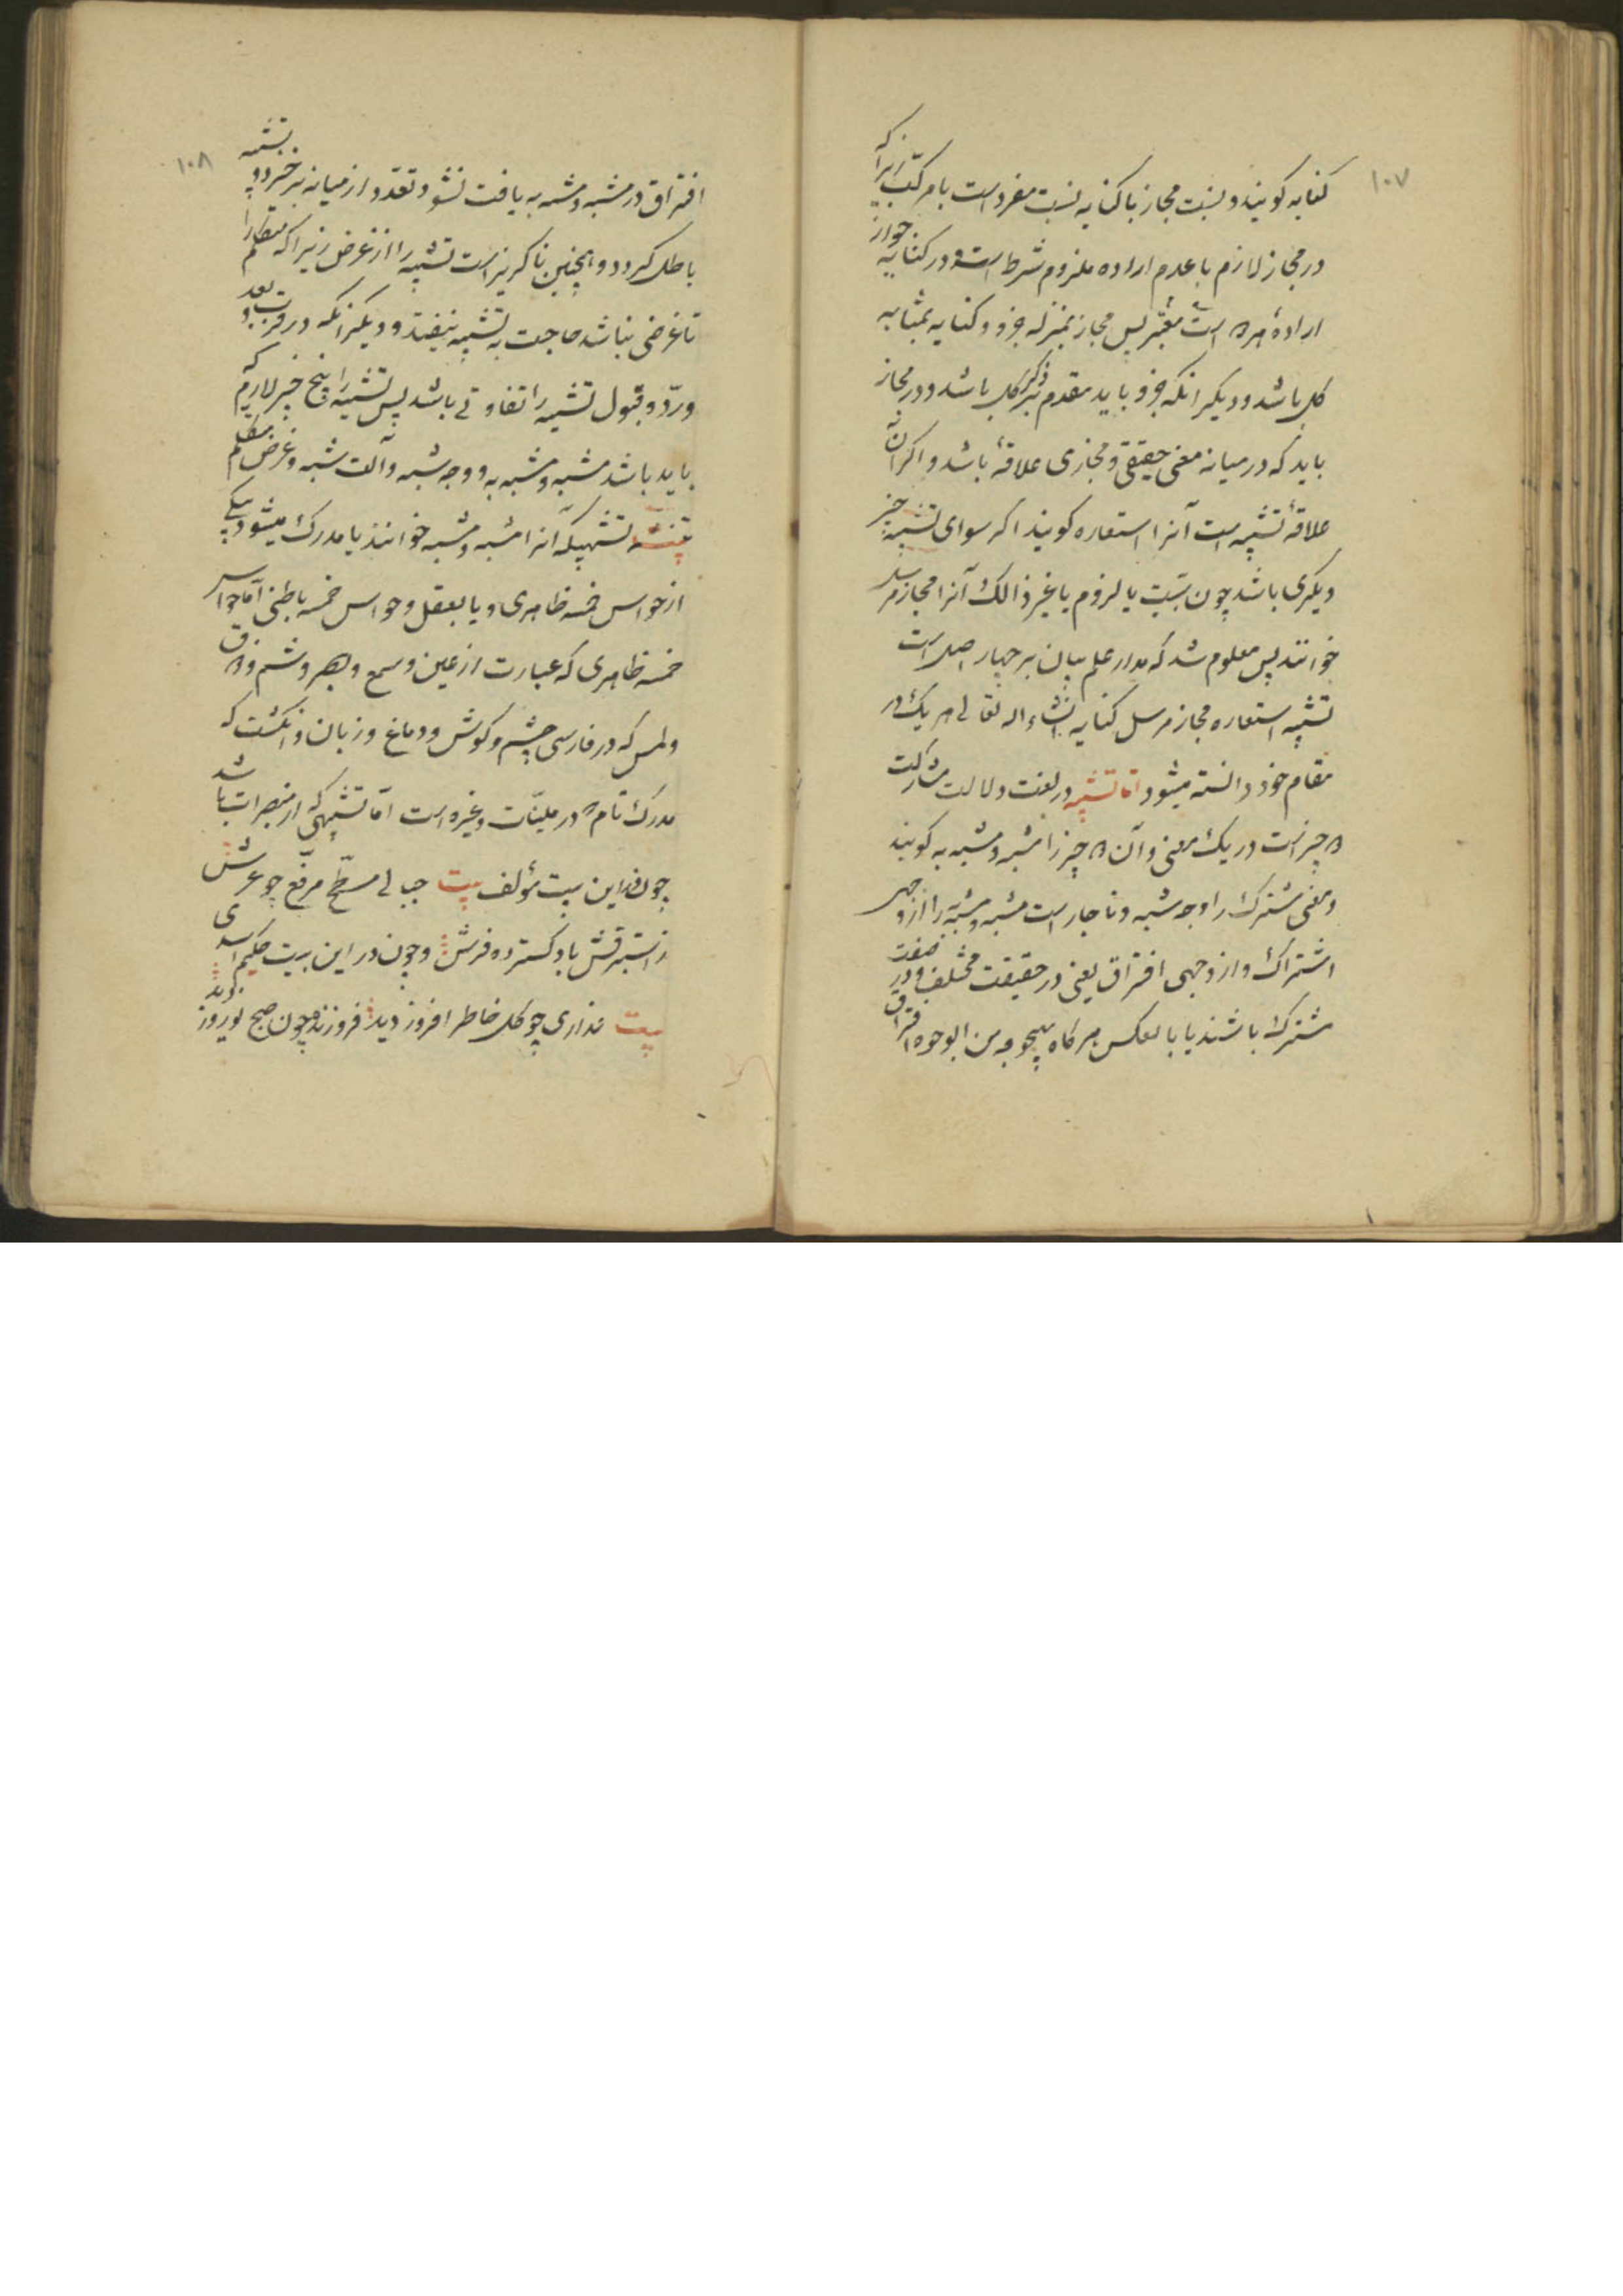 ۱۰۷
کنایه کویند و نسبت مجاز با کنایه نسبت مفرد است با مرکب زیرا که
در مجاز لازم با عدم اراده ملزوم شرط است و در کنایه جواز
اراده هر ۲ است معتبر پس مجاز بمنزله جزو و کنایه بمثابه
کل باشد و دیکر انکه جزو باید مقدم بر ذکر کل باشد و در مجاز
باید که در میانه معنی حقیقی و مجازی علاقهٔ باشد و اکر آن
علاقهٔ تشبیه است آنرا استعاره کویند اکر سوای تشبیه چیز
دیکری باشد چون سببیت یا لزوم یا غیر ذالک آنرا مجاز مرسل
خوانند پس معلوم شد که مدار علم بیان بر چهار اصل است
تشبیه استعاره مجاز مرسل کنایه انشاء اله تعالی هر یک در
مقام خود دانسته میشود اما تشبیه در لغت دلالت مشارکت
۲ چیز است در یک معنی و آن ۲ چیز را مشبه و مشبه به کویند
و معنی مشترک را وجه شبه و ناچار است مشبه و مشبه به را از وجهی
اشتراک و از وجهی افتراق یعنی در حقیقت مختلف و در صفت
مشترک باشند یا بالعکس هرکاه بهیچ وجه من الوجوه افتراق
۱۰۸
افتراق در مشبه و مشبه به یافت نشود تعدد از میانه برخیزد و تشبیه
باطل کردد و همچنین ناکریز است تشبیه را از غرض زیرا که متکلم را
تا غرضی نباشد حاجت به تشبیه نیفتد و دیکر انکه در قرب و بعد
و ردّ و قبول تشبیه را تفاوتی باشد پس تشبیه را پنج چیز لازم که
باید باشد مشبه و مشبه به و وجه شبه و آلت شبه و غرض متکلم
تشبیهیکه آنرا مشبه و مشبه خوانند یا مدرک میشود بیکی
از حواس خمسه ظاهری و یا بعقل و حواس خمسه باطنی اما حواس
خمسه ظاهری که عبارت از عین و سمع و بصر و شم و ذوق
و لمس که در فارسی چشم و کوش و دماغ و زبان و انکشت که
مدرک تام ۲ در ملینّات و غیره است امّا تشبیهی که از مبصرات باشد
چون در این بیت مؤلف بیت جبالی مسطّح مرفّع چو عرش
ز استبرقش باد کسترده فرش و چون در این بیت حکیم اسدی
بیت نداری چو کل خاطر افروز دید فروزنده چون صبح نوروز دید